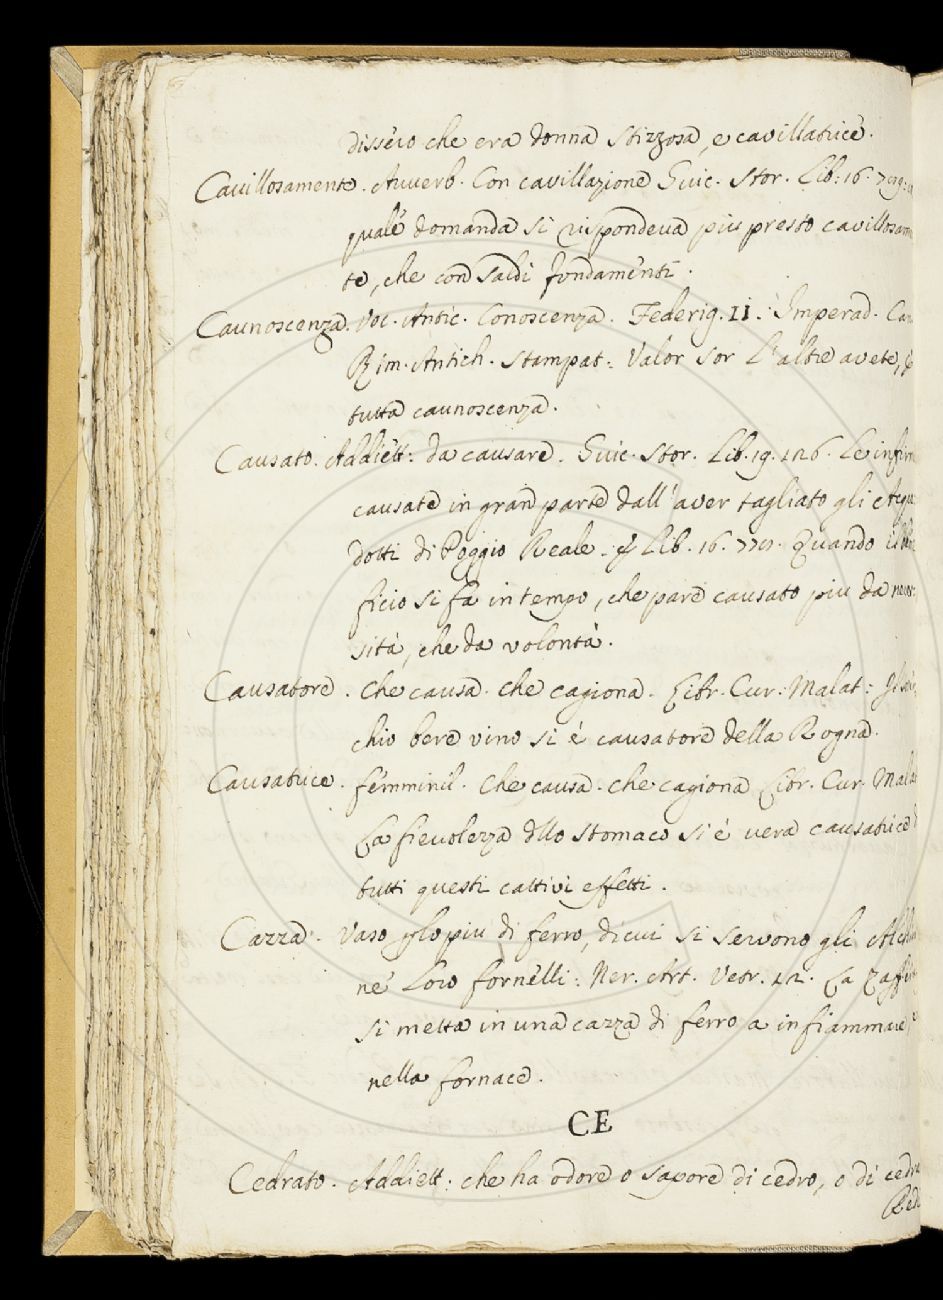 dissero che era donna stizzosa, e cavillatrice.
Cavillosamente. Avverb. Con cavillazione Guic. Stor. Lib: 16.
quale domanda si rispondeva piu presto cavillosam
te, che con saldi fondamenti.
Caunoscenza. Voc. Antic. Conoscenza. Federig. II. Imperad. Can
Rim. Antich. Stampat: Valor sor l'altre avete,
tutta caunoscenza.
Causato. Addiett: da causare. Guic. Stor. Lib. 19. 126. Le infirm
causate in gran parte dall'aver tagliato gli Acqu
dotti di Poggio Reale. Lib. 16. Quando il
ficio si fa in tempo, che pare causato piu da neces
sità, che da volontà.
Causatore. Che causa. che cagiona. Libr. Cur: Malat:
chio bere vino si è causatore della Rogna.
Causatrice. femminil. Che causa. che cagiona Libr. Cur. Mala
La fievolezza dllo stomaco si è vera causatrice d
tutti questi cattivi effetti.
Cazza. Vaso plo piu di ferro, di cui si servono gli Alch
nè Loro fornelli: Ner. Art. Vetr. La Zaff
si metta in una cazza di ferro a infiammare
nella fornace.
CE
Cedrato. Addiett. che ha odore o sapore di cedro, o di cedra
Red